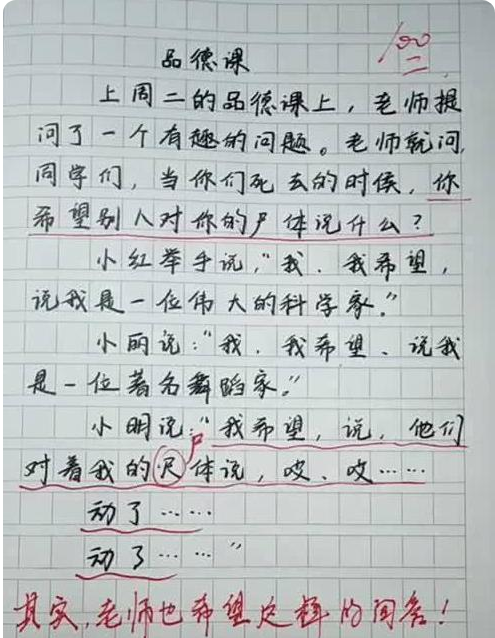 品德课
100
上周二的品德课上，老师提
问了一个有趣的问题。老师就问，
同学们，当你们死去的时候，你
希望别人对你的尸体说什么？
小红举手说，"我．我希望，
说我是一位伟大的科学家。"
小丽说："我．我希望、说我
是一位著名舞蹈家。"
尸
小明说："我希望，说，他们
对着我的尺体说，哎、哎……
动了……
动了……"
其实，老师也希望这样的回答！